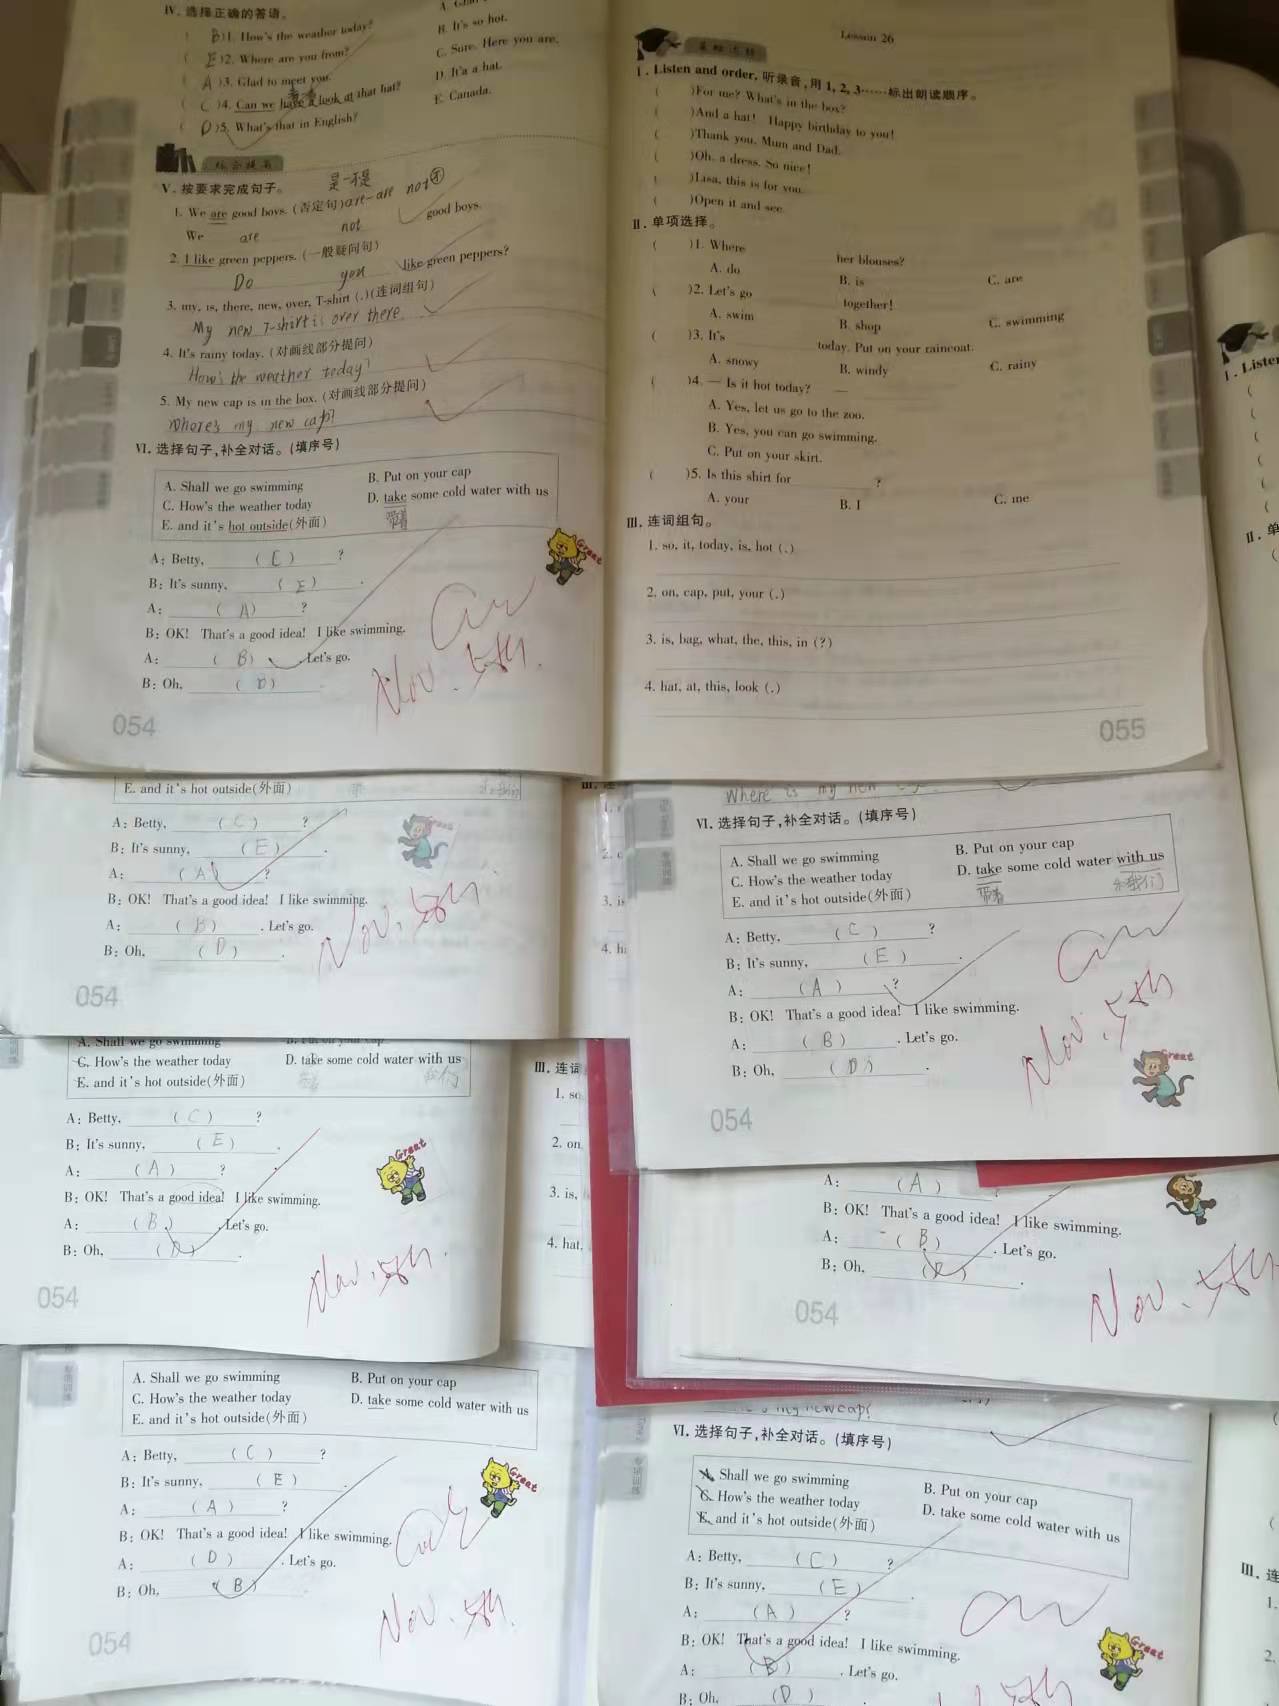 IV. 选择正确的答语。
( B )1. How's the weather today?
B. It's so hot.
( E )2. Where are you from?
C. Sure. Here you are.
( A )3. Glad to meet you.
D. It's a hat.
( C )4. Can we have a look at that hat?
E. Canada.
( D )5. What's that in English?
综合提升
V. 按要求完成句子。
是-不是
1. We are good boys. (否定句) are-are not
We are not good boys.
2. I like green peppers. (一般疑问句)
Do you like green peppers?
3. my, is, there, new, over, T-shirt (.)(连词组句)
My new T-shirt is over there.
4. It's rainy today. (对画线部分提问)
How's the weather today?
5. My new cap is in the box. (对画线部分提问)
Where's my new cap?
VI. 选择句子,补全对话。(填序号)
A. Shall we go swimming
B. Put on your cap
C. How's the weather today
D. take some cold water with us
E. and it's hot outside(外面)
带着
A: Betty, ( C ) ?
B: It's sunny, ( E ) .
A: ( A ) ?
B: OK! That's a good idea! I like swimming.
A: ( B ) . Let's go.
B: Oh, ( D ) .
Great
Nov. 5th.
054
Lesson 26
基础达标
I. Listen and order. 听录音,用 1, 2, 3……标出朗读顺序。
( )For me? What's in the box?
( )And a hat! Happy birthday to you!
( )Thank you, Mum and Dad.
( )Oh, a dress. So nice!
( )Lisa, this is for you.
( )Open it and see.
II. 单项选择。
( )1. Where ______ her blouses?
A. do B. is C. are
( )2. Let's go ______ together!
A. swim B. shop C. swimming
( )3. It's ______ today. Put on your raincoat.
A. snowy B. windy C. rainy
( )4. — Is it hot today? —
A. Yes, let us go to the zoo.
B. Yes, you can go swimming.
C. Put on your skirt.
( )5. Is this shirt for ______ ?
A. your B. I C. me
III. 连词组句。
1. so, it, today, is, hot (.)
2. on, cap, put, your (.)
3. is, bag, what, the, this, in (?)
4. hat, at, this, look (.)
055
I. Liste
II. 单
E. and it's hot outside(外面)
A: Betty, ( C ) ?
B: It's sunny, ( E ) .
A: ( A ) ?
B: OK! That's a good idea! I like swimming.
A: ( B ) . Let's go.
B: Oh, ( D ) .
Great
Nov. 5th
054
3. is
4. h
Where is my new
VI. 选择句子,补全对话。(填序号)
A. Shall we go swimming
B. Put on your cap
C. How's the weather today
D. take some cold water with us
E. and it's hot outside(外面)
带着
和我们
A: Betty, ( C ) ?
B: It's sunny, ( E ) .
A: ( A ) ?
B: OK! That's a good idea! I like swimming.
A: ( B ) . Let's go.
B: Oh, ( D ) .
Nov. 5th
Great
054
A. Shall we go swimming
B. Put on your cap
C. How's the weather today
D. take some cold water with us
E. and it's hot outside(外面)
带着
我们
A: Betty, ( C ) ?
B: It's sunny, ( E ) .
A: ( A ) ?
B: OK! That's a good idea! I like swimming.
A: ( B ) . Let's go.
B: Oh, ( D ) .
Great
Nov. 5th.
054
III. 连词
1. so
2. on
3. is,
4. hat,
A: ( A )
B: OK! That's a good idea! I like swimming.
A: ( B ) . Let's go.
B: Oh, ( D ) .
Nov. 5th
054
A. Shall we go swimming
B. Put on your cap
C. How's the weather today
D. take some cold water with us
E. and it's hot outside(外面)
A: Betty, ( C ) ?
B: It's sunny, ( E ) .
A: ( A ) ?
B: OK! That's a good idea! I like swimming.
A: ( D ) . Let's go.
B: Oh, ( B ) .
Great
Nov. 5th.
054
my new cap?
VI. 选择句子,补全对话。(填序号)
A. Shall we go swimming
B. Put on your cap
C. How's the weather today
D. take some cold water with us
E. and it's hot outside(外面)
A: Betty, ( C ) ?
B: It's sunny, ( E ) .
A: ( A ) ?
B: OK! That's a good idea! I like swimming.
A: ( B ) . Let's go.
B: Oh, ( D ) .
Great
III. 连
1.
2.